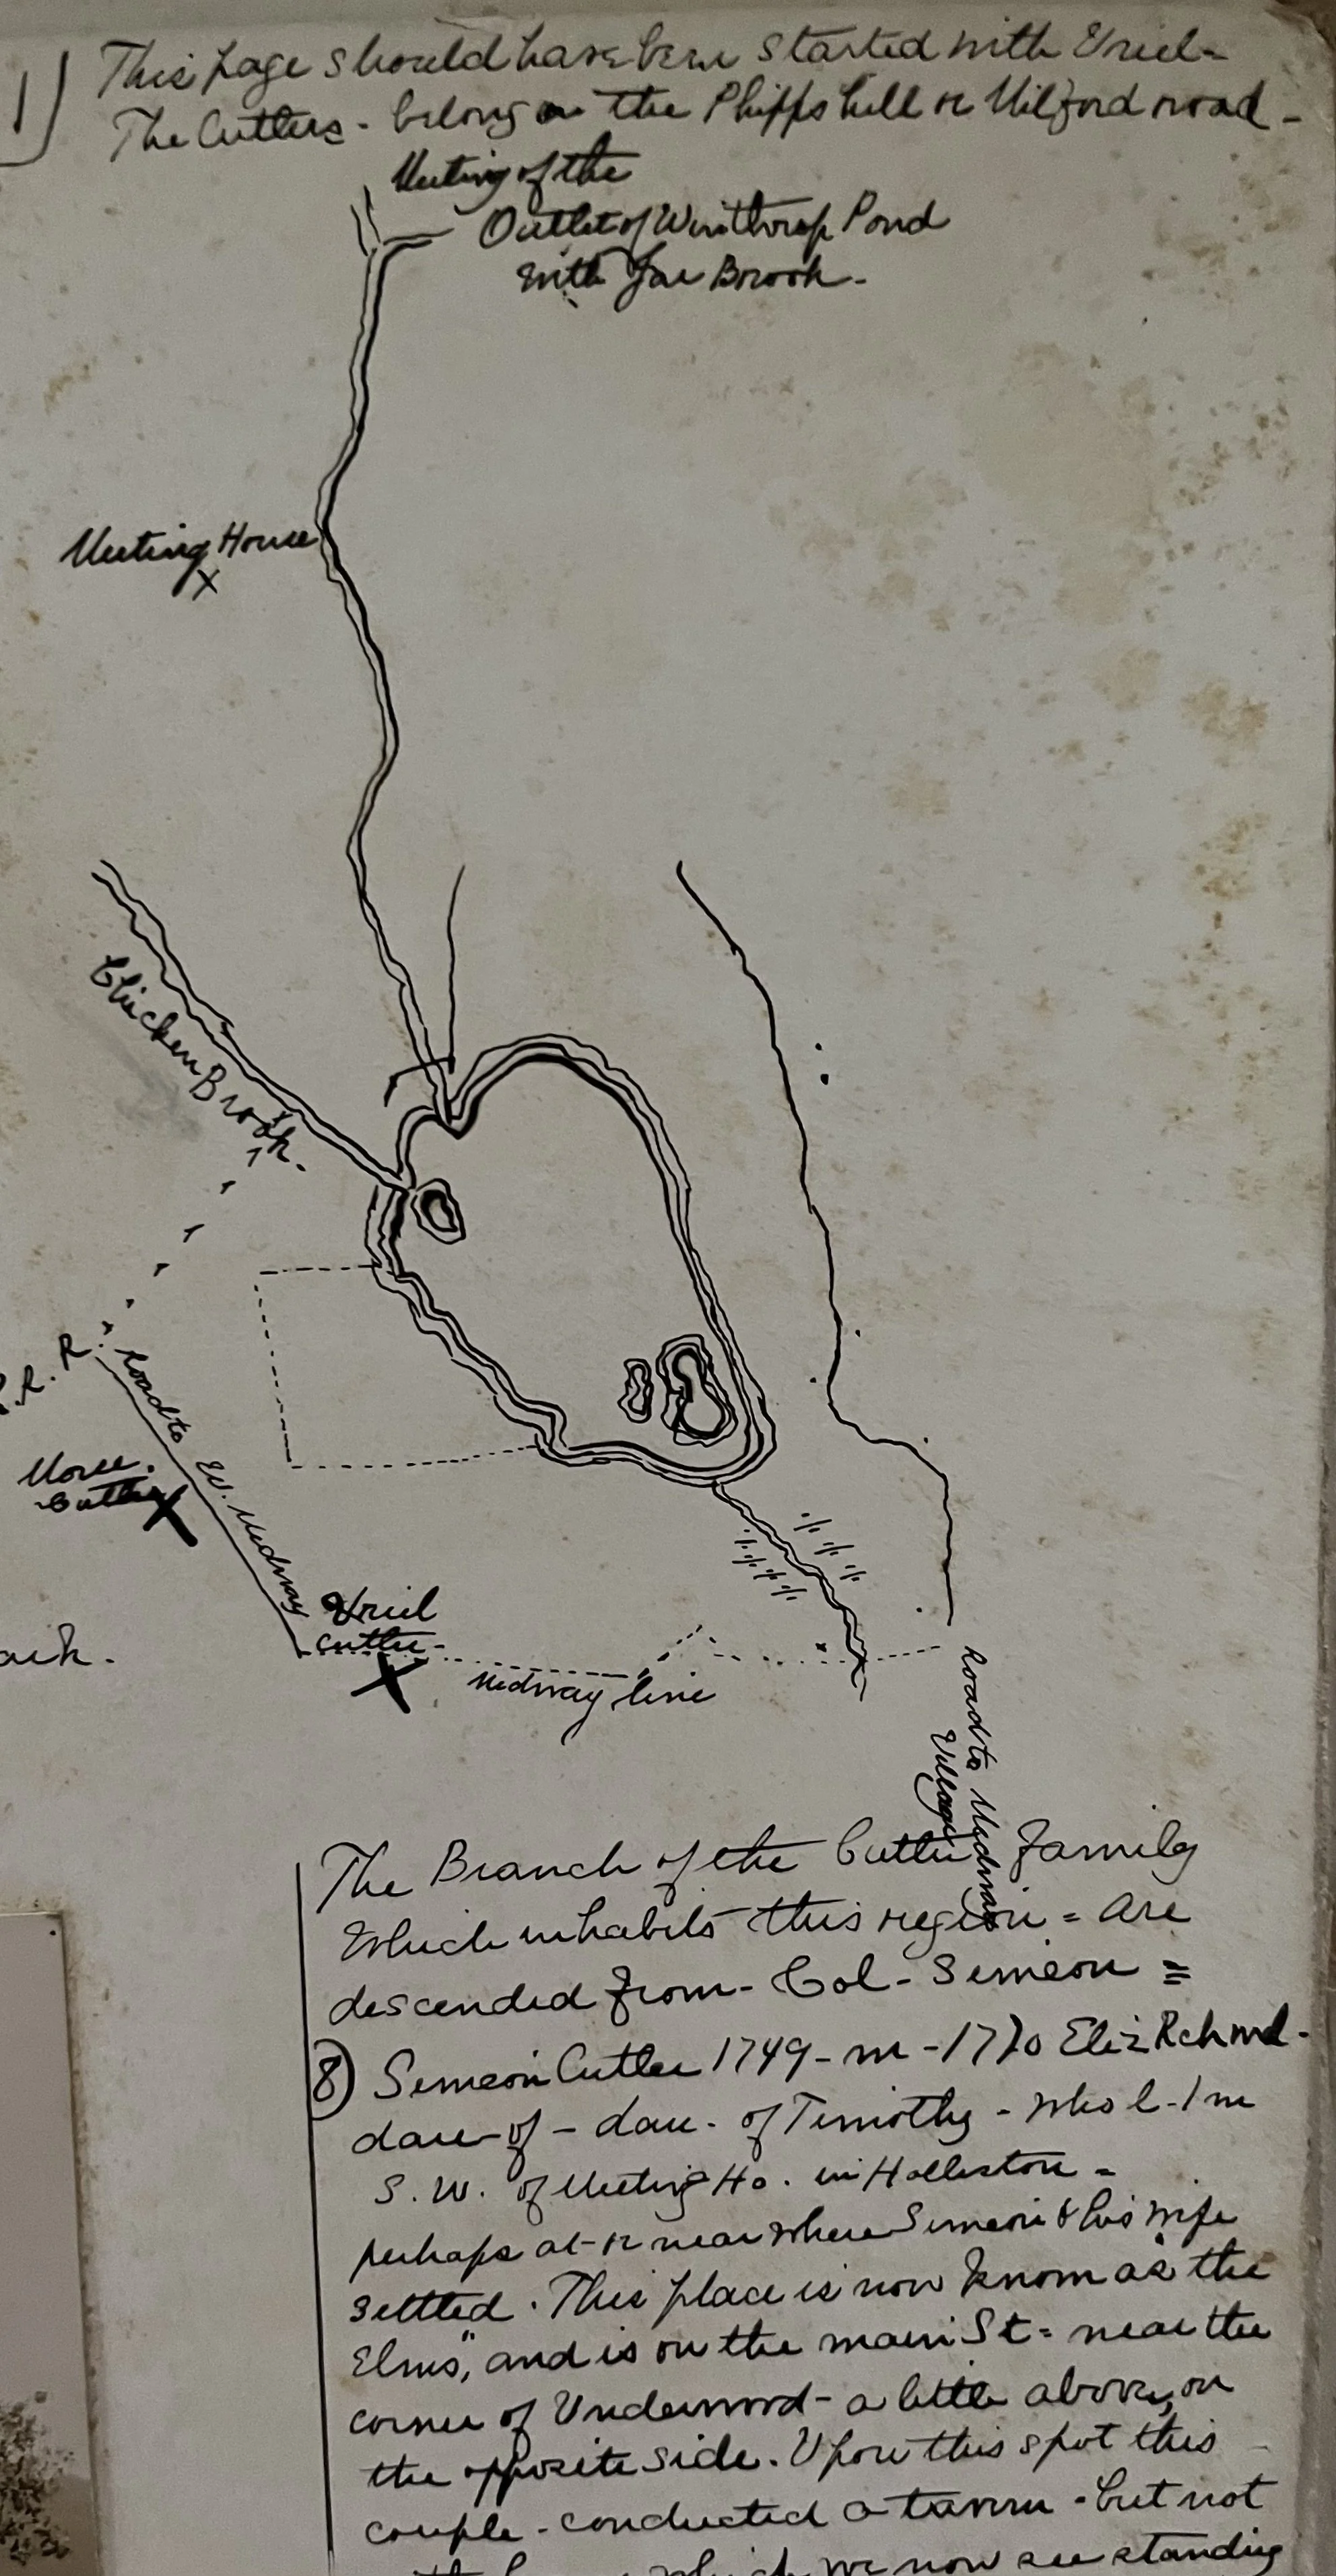 1) This page should have been started with Uriel-
The Cutlers - belong on the Phipps hill or Milford road -
Meeting of the
Outlet of Winthrop Pond
with Jar Brook -
Meeting House
X
Chicken Brook.
R. R.
Road to W. Medway
Cutler
X
Uriel
Cutler-
X
Medway line
Road to Medway
Village
The Branch of the Cutler Family
Which inhabits this region = are
descended from - Col - Simeon =
8) Simeon Cutler 1749 - m - 1770 Eliz Rchmd -
dau - of - dau - of Timothy - who l - 1 m
S. W. of Meeting Ho. in Holliston -
perhaps at - or near where Simeon & his wife
settled. This place is now known as the
Elms", and is on the main St = near the
corner of Underwood - a little above, on
the opposite side. Upon this spot this
couple - conducted a tavern - but not
which we now see standing